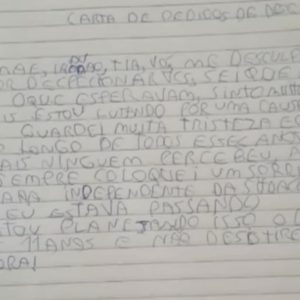 CARTA DE PEDIDOS DE DESC
MAE, TIA, VOS ME DESCULP
OR DECEPCIONAR VCS, SEI QUE
O QUE ESPERAVAM, SINTO MUITO
IS ESTOU LUTANDO POR UMA CAUS
GUARDEI MUITA TRISTEZA E
LONGO DE TODOS ESSES ANOS
AIS NINGUEM PERCEBEU,
SEMPRE COLOQUEI UM SORRI
ARA INDEPENDENTE DA SITUAC
EU ESTAVA PASSANDO
TOU PLANEJANDO ISSO
E 11 ANOS E NÃO DESISTIREI
ORA!